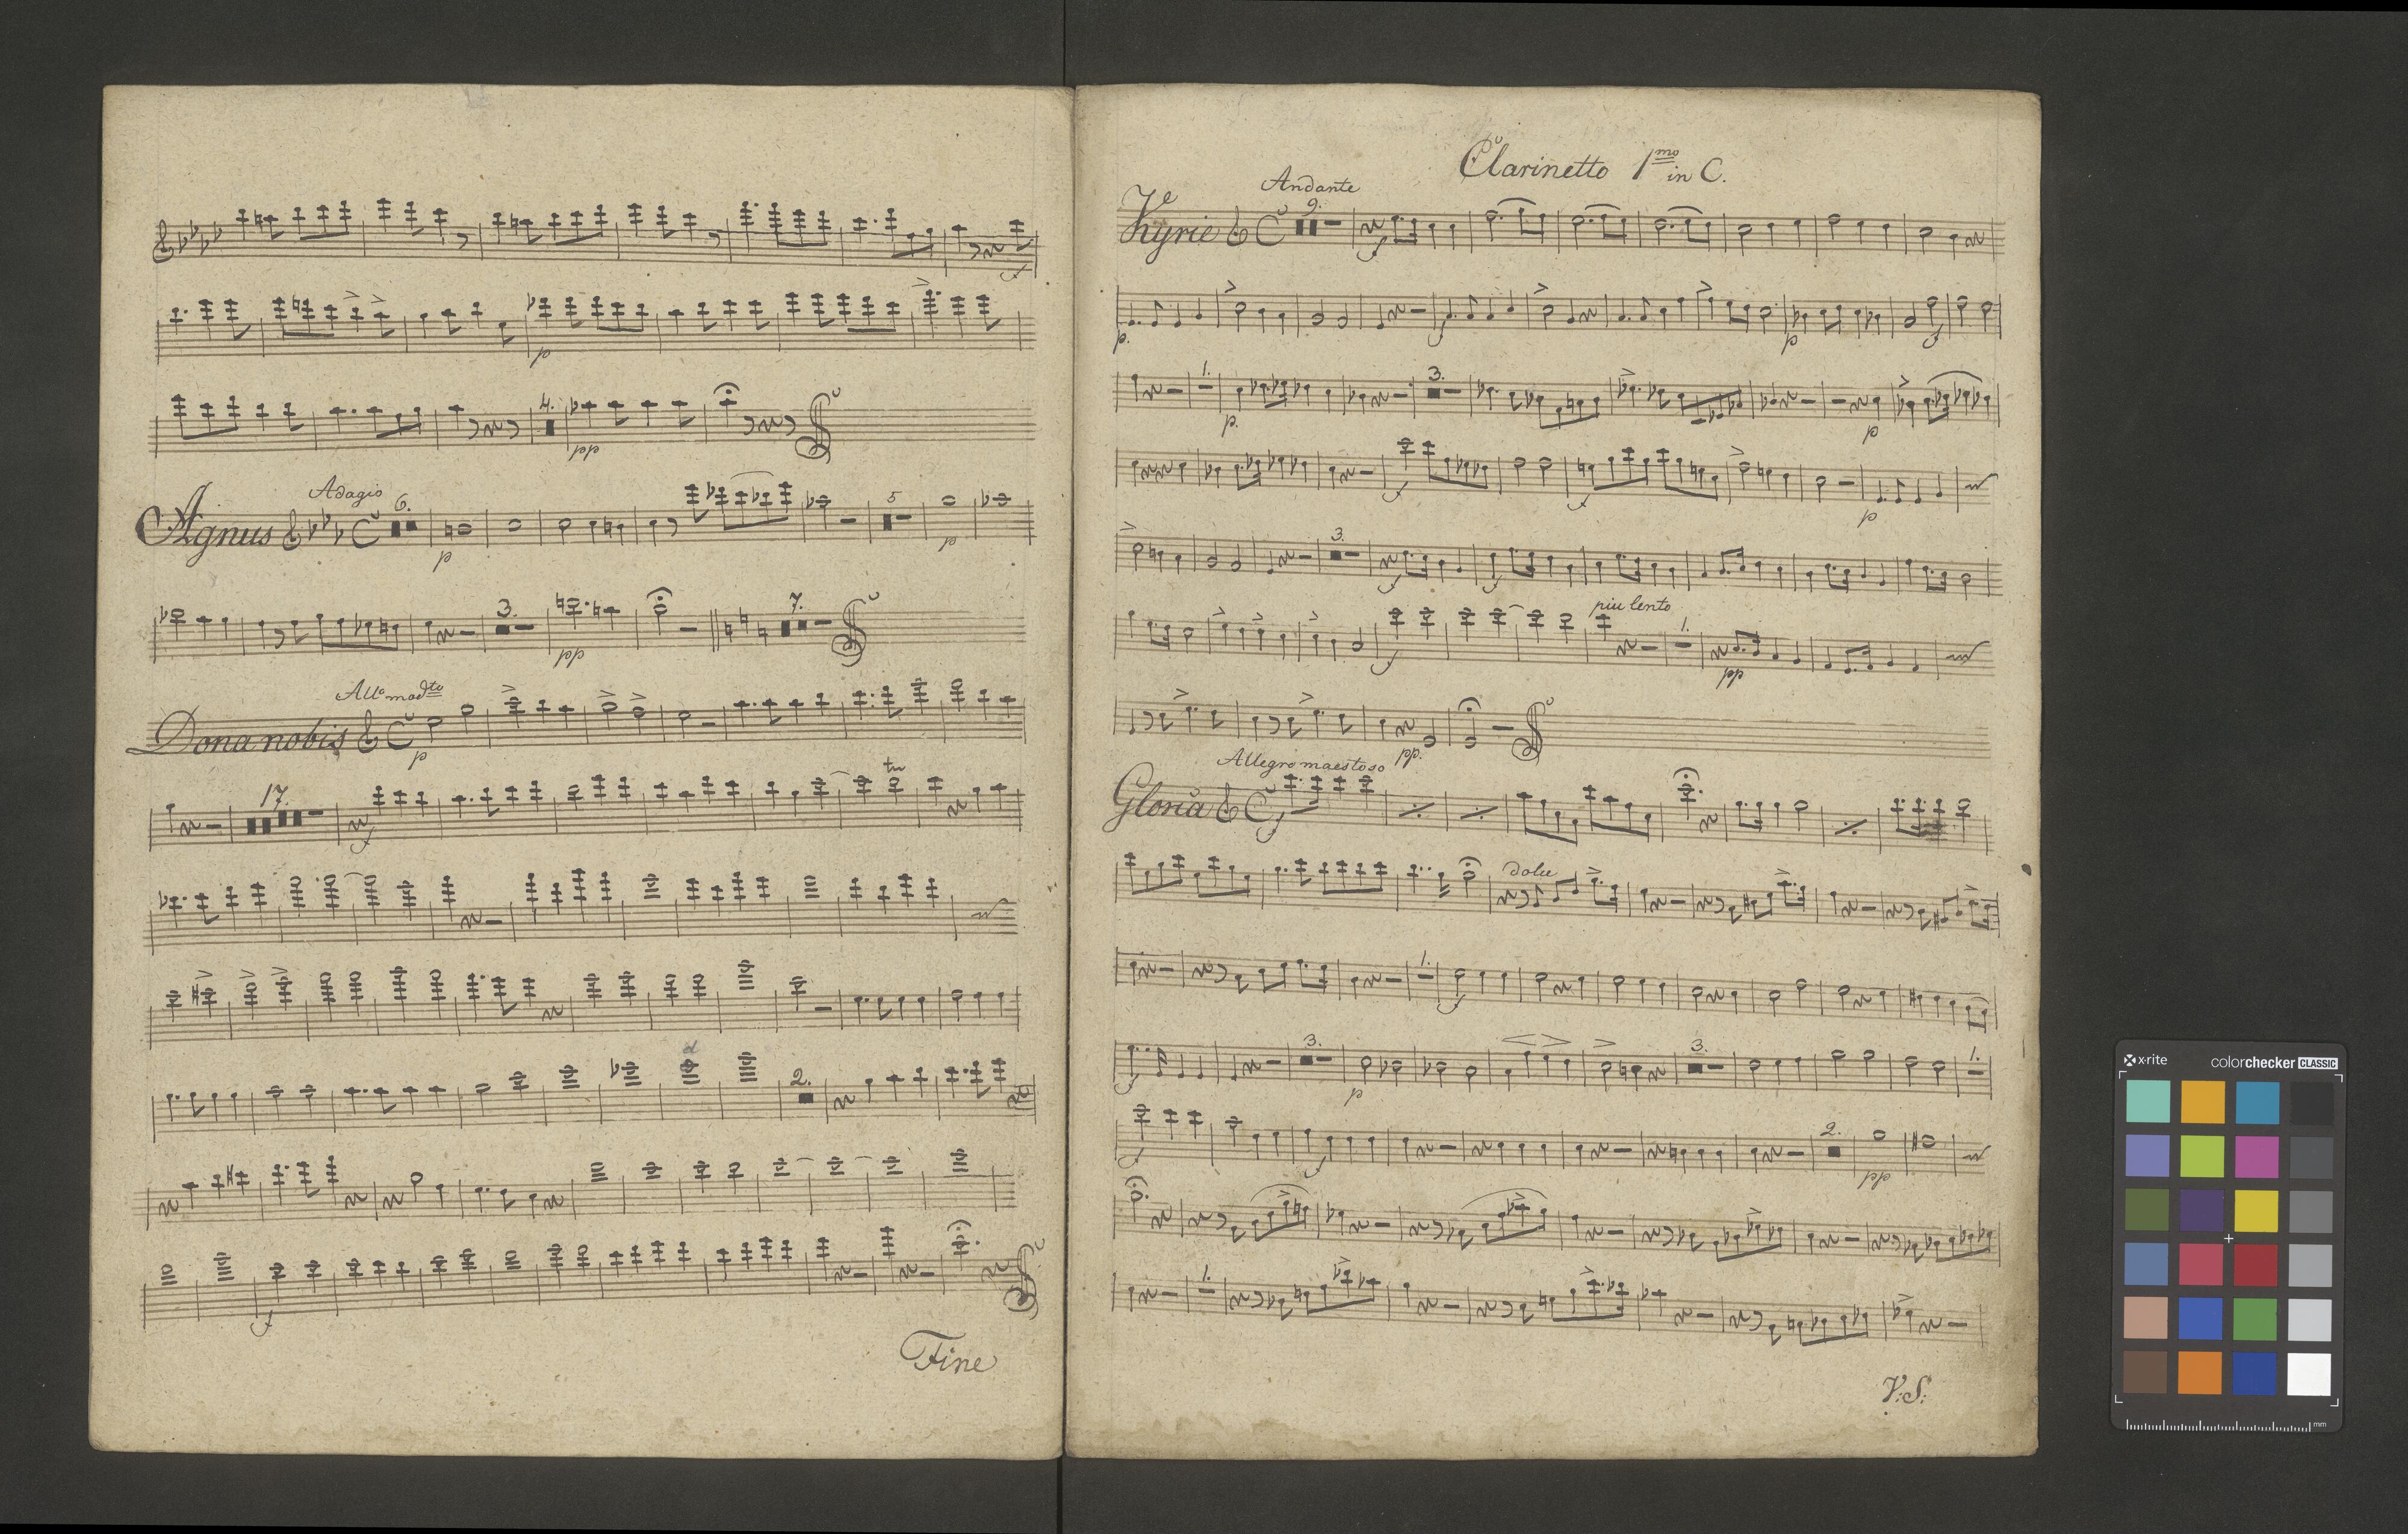 f
p
4.
pp
Agnus Adagio 6.
p
5
p
3.
pp
7.
Dona nobis Allo modto
p
17.
f
tr
2.
f
Fine
Clarinetto 1mo in C.
Kyrie Andante
9.
f
p.
f
p
f
1.
p.
3.
p
f
f
p
3.
f
f
f
piu lento
1.
pp
pp.
Gloria Allegro maestoso
f
dolce
1.
f
f
3.
p
3.
1.
f
f
2.
pp
1.
V:S:
x-rite colorchecker CLASSIC
mm